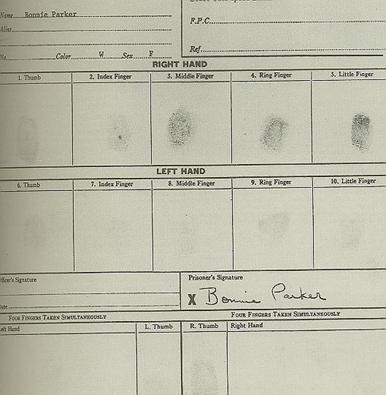 Name Bonnie Parker
Alias
F.P.C.
No. Color W Sex F
Ref.
RIGHT HAND
1. Thumb 2. Index Finger 3. Middle Finger 4. Ring Finger 5. Little Finger
LEFT HAND
6. Thumb 7. Index Finger 8. Middle Finger 9. Ring Finger 10. Little Finger
Officer's Signature
Prisoner's Signature
X Bonnie Parker
Date
FOUR FINGERS TAKEN SIMULTANEOUSLY FOUR FINGERS TAKEN SIMULTANEOUSLY
Left Hand L. Thumb R. Thumb Right Hand